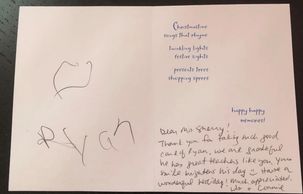 Christmastime
songs that rhyme
twinkling lights
festive sights
presents trees
shopping sprees
happy happy
memories!
RyAN
Dear Mrs. Sherry!
Thank you for taking such good
care of Ryan, we are grateful
he has great teachers like you. Your
smile brightens his day. Have a
wonderful holiday! Much appreciated.